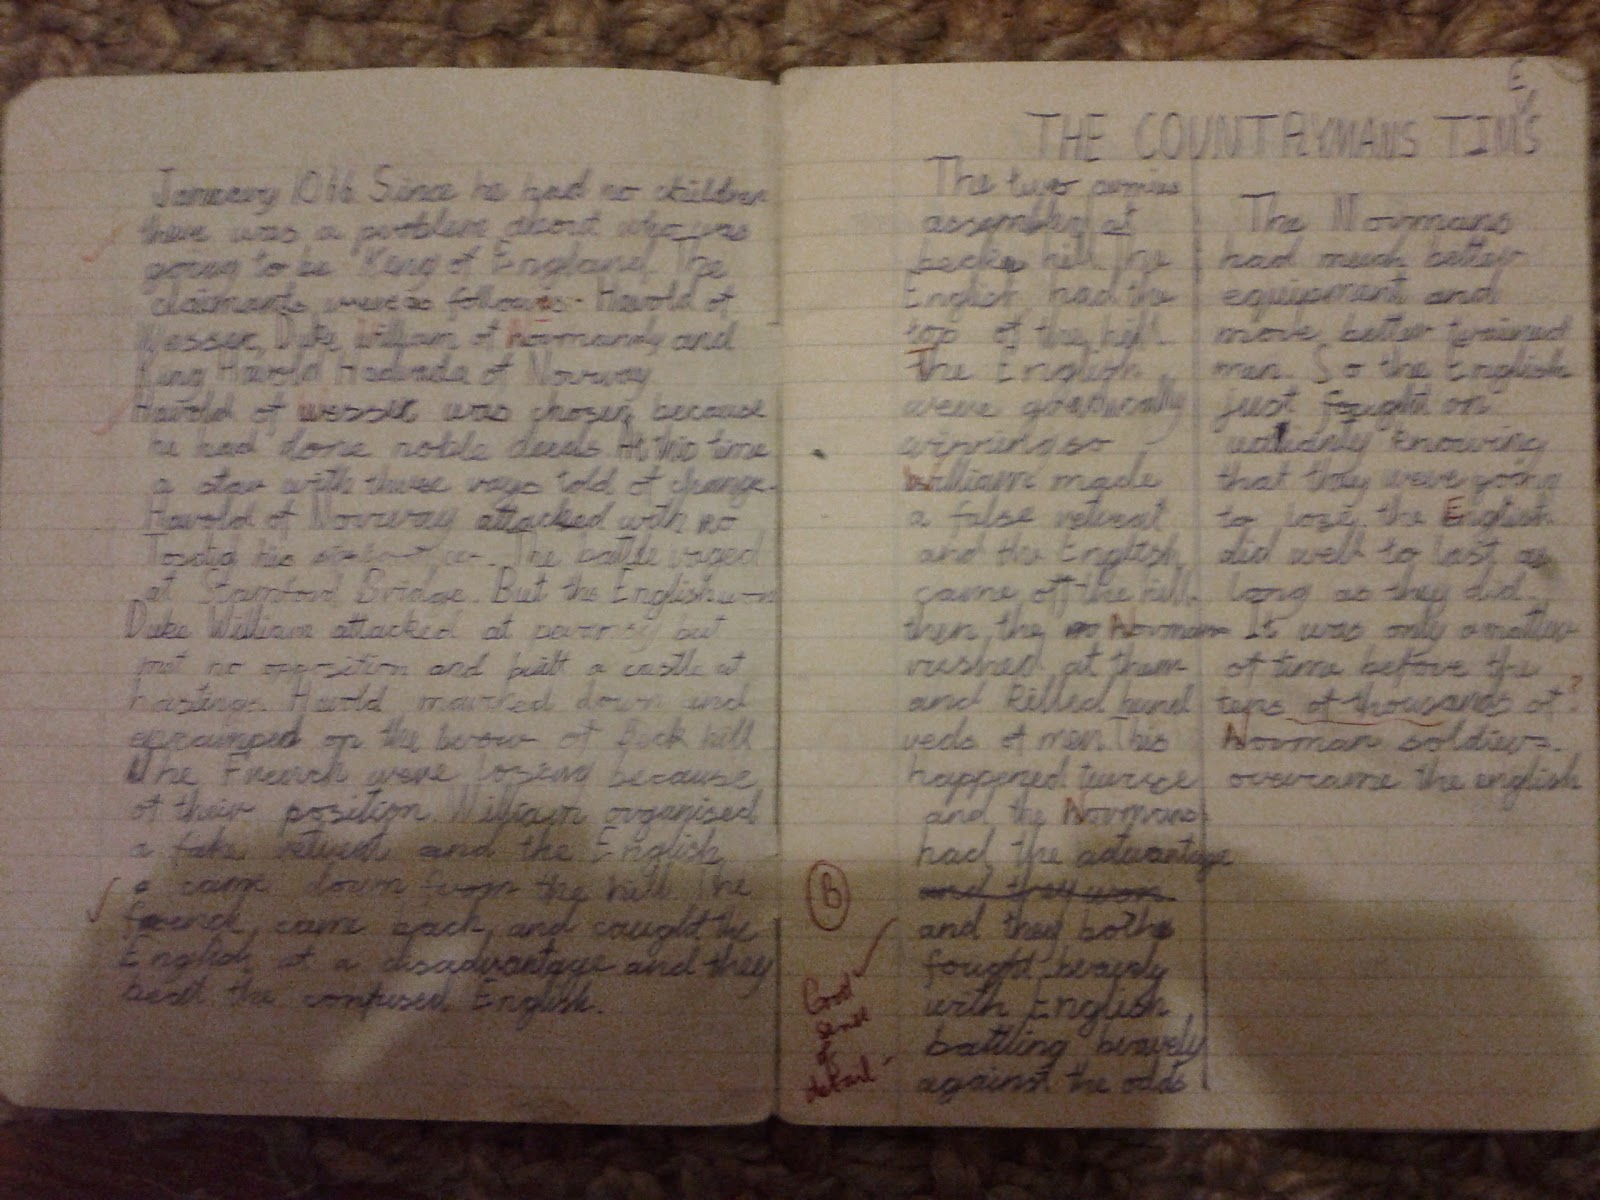 January 1066. Since he had no children
there was a problem about who was
going to be King of England. The
claimants were as follows:- Harold of
Wessex, Duke William of Normandy and
King Harold Hadrada of Norway.
Harold of wessex was chosen because
he had done noble deeds. At this time
a star with three rays told of change.
Harold of Norway attacked with
Tostig his The battle raged
at Stamford Bridge. But the English won
Duke William attacked at pevensy but
met no opposition and built a castle at
hastings. Harold marched down and
encamped on the brow of hill
The French were losing because
of their position. William organised
a fake retreat and the English
came down from the hill. The
french came back and caught the
English at a disadvantage and they
beat the confused English.
E
THE COUNTRYMANS TIMS
The two armies
assembled at
hill. The
English had the
top of the hill.
The English
were gradually
winning so
William made
a false retreat
and the English
came off the hill.
then the Normans
rushed at them
and killed hund
reds of men. This
happened twice
and the Normans
had the advantage
and they won
and they bothe
fought bravely
with English
battling bravely
against the odds
The Normans
had much better
equipment and
more better trained
men. So the English
just fought on
valiantly knowing
that they were going
to lose. the English
did well to last as
long as they did.
It was only a matter
of time before the
tens of thousands of ?
Norman soldiers
overcame the english
B
Good
sense
of
detail